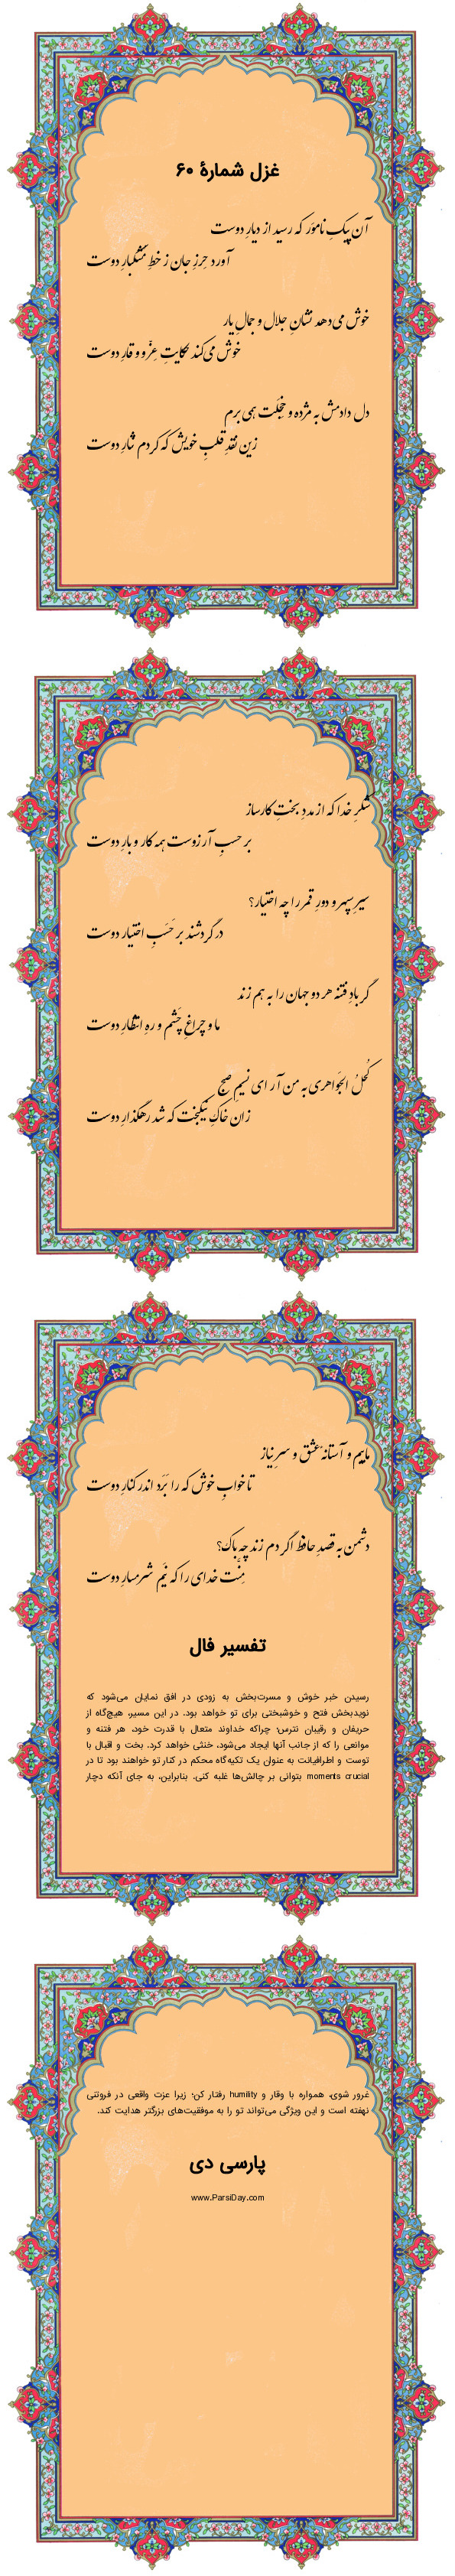 غزل شمارهٔ ۶۰
آن پیکِ ناموَر که رسید از دیارِ دوست
آورد حِرزِ جان ز خطِ مُشکبارِ دوست
خوش می‌دهد نشانِ جلال و جمالِ یار
خوش می‌کند حکایتِ عِزّ و وقارِ دوست
دل دادمش به مژده و خِجلَت همی‌برم
زین نقدِ قلبِ خویش که کردم نثارِ دوست
شکرِ خدا که از مددِ بختِ کارساز
بر حسبِ آرزوست همه کار و بارِ دوست
سیرِ سپهر و دورِ قمر را چه اختیار؟
در گردشند بر حَسَبِ اختیار دوست
گر بادِ فتنه هر دو جهان را به هم زند
ما و چراغِ چشم و رهِ انتظارِ دوست
کُحلُ الجَواهری به من آر ای نسیمِ صبح
زان خاکِ نیکبخت که شد رهگذارِ دوست
ماییم و آستانهٔ عشق و سرِ نیاز
تا خوابِ خوش که را بَرَد اندر کنارِ دوست
دشمن به قصدِ حافظ اگر دم زند چه باک؟
مِنَّت خدای را که نِیَم شرمسارِ دوست
تفسیر فال
رسیدن خبر خوش و مسرت‌بخش به زودی در افق نمایان می‌شود که
نویدبخش فتح و خوشبختی برای تو خواهد بود. در این مسیر، هیچ‌گاه از
حریفان و رقیبان نترس؛ چراکه خداوند متعال با قدرت خود، هر فتنه و
موانعی را که از جانب آنها ایجاد می‌شود، خنثی خواهد کرد. بخت و اقبال با
توست و اطرافیانت به عنوان یک تکیه‌گاه محکم در کنار تو خواهند بود تا در
moments crucial بتوانی بر چالش‌ها غلبه کنی. بنابراین، به جای آنکه دچار
غرور شوی، همواره با وقار و humility رفتار کن؛ زیرا عزت واقعی در فروتنی
نهفته است و این ویژگی می‌تواند تو را به موفقیت‌های بزرگتر هدایت کند.
پارسی دی
www.ParsiDay.com